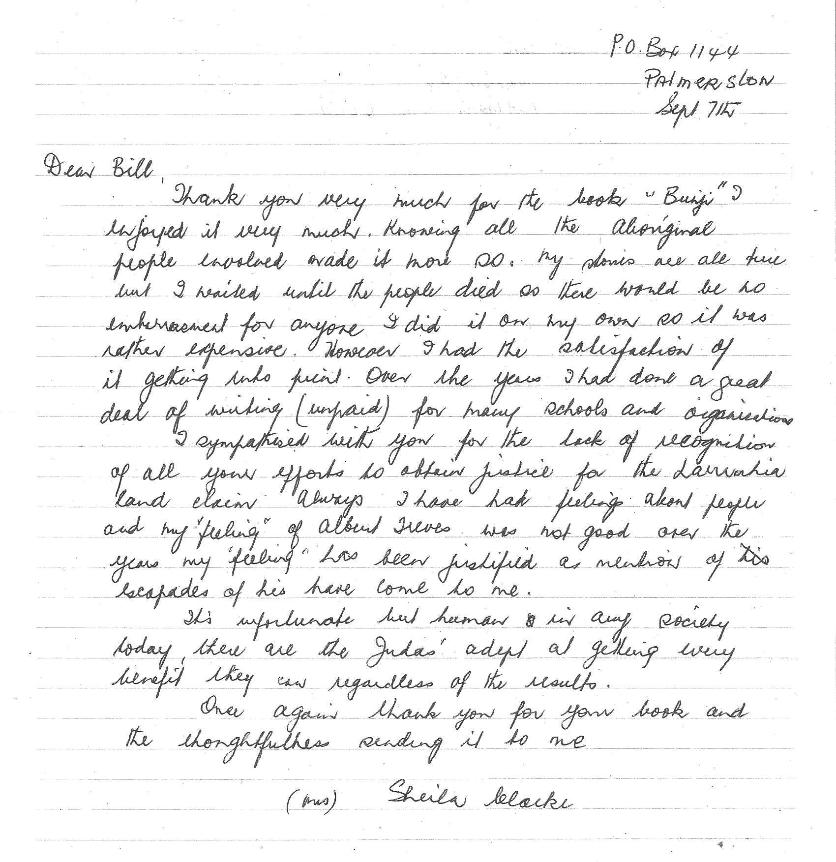 P.O. Box 1144
Palmerston
Sept 7th
Dear Bill,
Thank you very much for the book "Bunji" I
enjoyed it very much. Knowing all the Aboriginal
people involved made it more so. My stories are all true
but I waited until the people died so there would be no
embarrasment for anyone I did it on my own so it was
rather expensive. However I had the satisfaction of
it getting into print. Over the years I had done a great
deal of writing (unpaid) for many schools and organisations
I sympathised with you for the lack of recognition
of all your efforts to obtain justice for the Larrakia
land claim Always I have had feelings about people
and my "feeling" of Albert Treves was not good over the
years my "feeling" has been justified as mention of his
escapades of his have come to me.
It's unfortunate but human in any society
today, there are the Judas' adept at getting every
benefit they can regardless of the results.
Once again thank you for your book and
the thoughtfulness sending it to me
(Mrs) Sheila Clarke